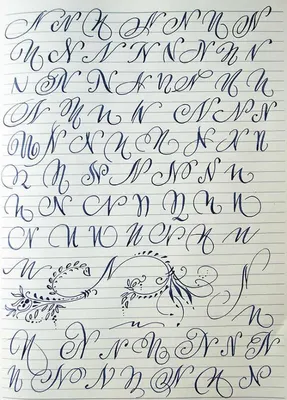 N N N N N N
N N N N N N N N
N N N N N N N N
N N N N N N N N
N N N N N N N N
N N N N N N N N
N N N N N N N
N N N N N N N
N N N
N
N N N N N N N
N N N N N N N N